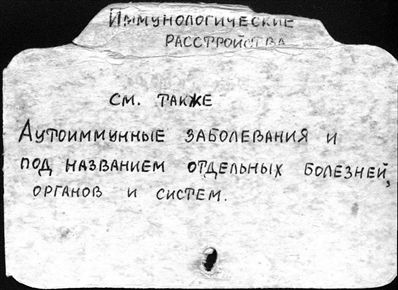 Иммунологические
расстройства
см. также
Аутоиммунные заболевания и
под названием отдельных болезней,
органов и систем.